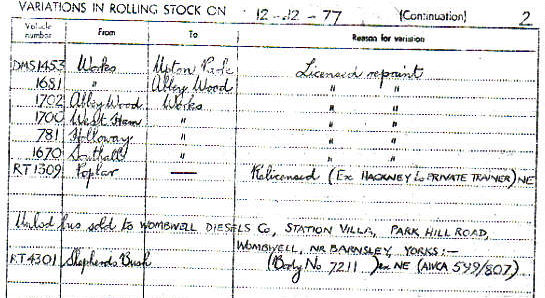 VARIATIONS IN ROLLING STOCK ON 12-12-77 (Continuation) 2
Vehicle number From To Reason for variation
DMS1453 Works Upton Park Licensed repaint
1681 " Abbey Wood " "
1702 Abbey Wood Works " "
1700 West Ham " " "
781 Holloway " " "
1670 Southall " " "
RT1309 Poplar — Relicensed (Ex HACKNEY to PRIVATE TRAINER) NE
bus sold to WOMBWELL DIESELS Co, STATION VILLA, PARK HILL ROAD,
WOMBWELL, NR BARNSLEY, YORKS:—
RT4301 Shepherds Bush (Body No 7211) ex NE (AWCA 599/807)